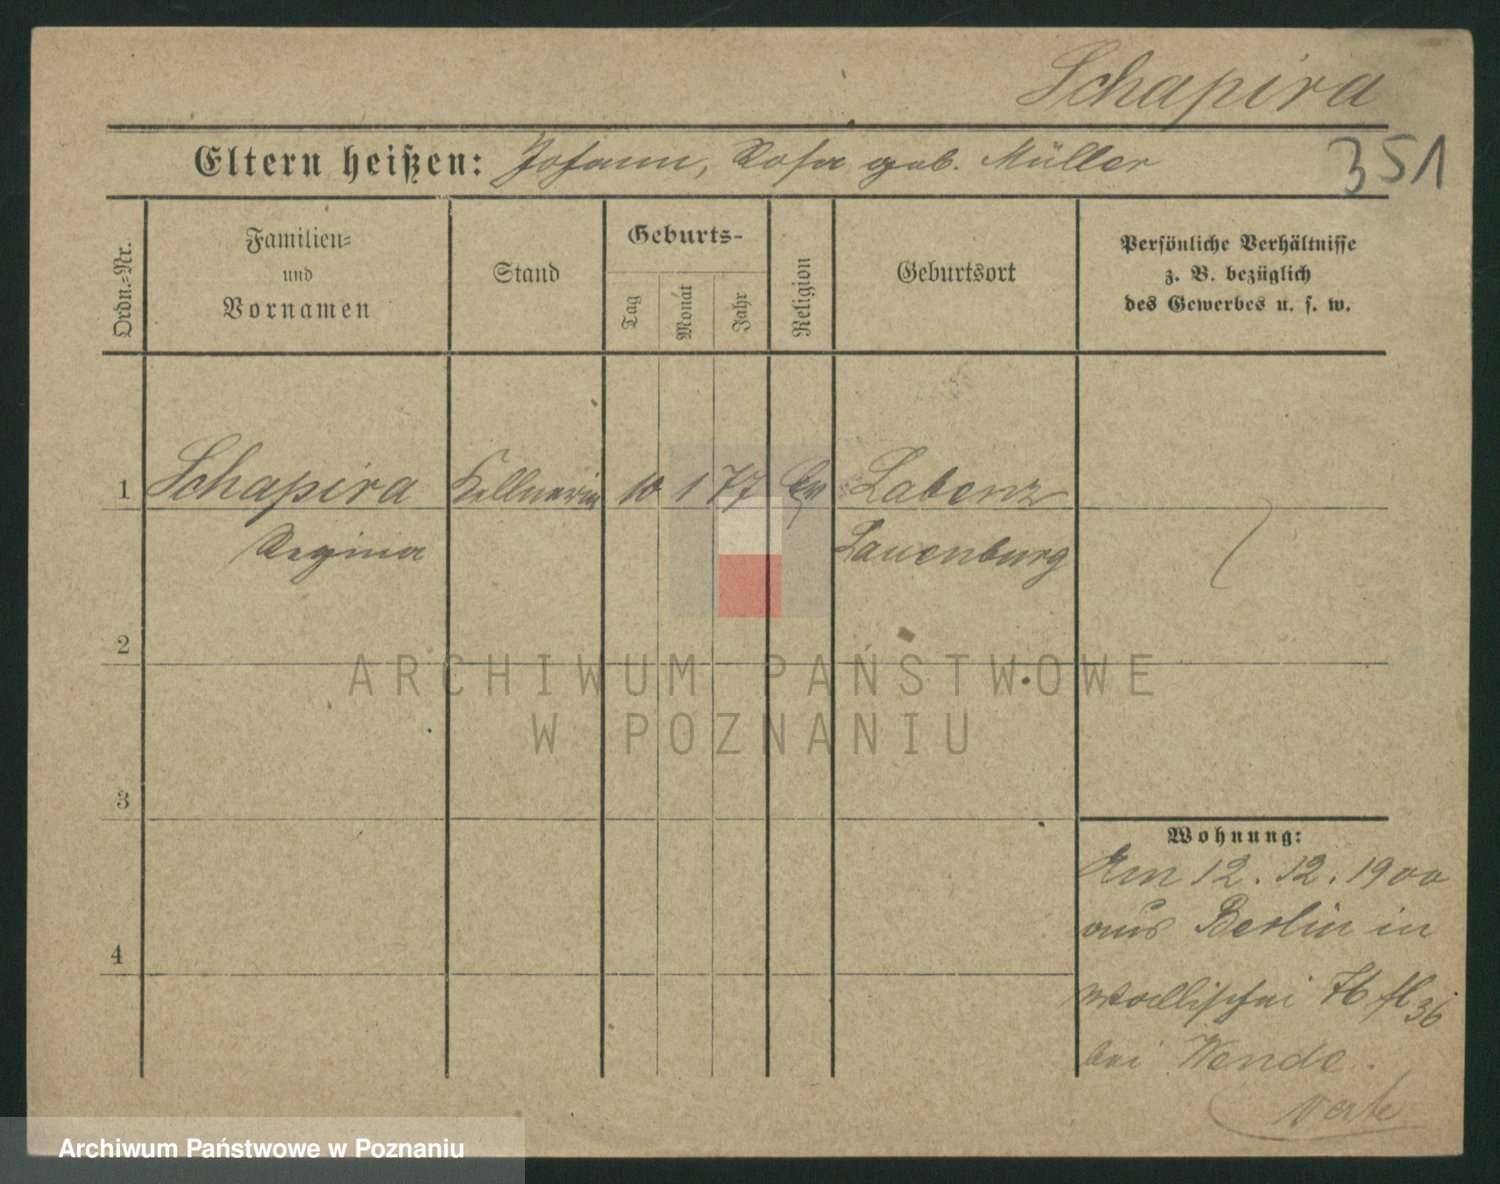 Schapira
Eltern heißen: Johann, Rosa geb. Müller
351
Ordn.-Nr.
Familien-
und
Vornamen
Stand
Geburts-
Tag
Monat
Jahr
Religion
Geburtsort
Persönliche Verhältnisse
z. B. bezüglich
des Gewerbes u. s. w.
1 Schapira Kellnerin 10 1 77 Ev Labenz
Regina Lauenburg
2
ARCHIWUM PAŃSTWOWE
W POZNANIU
3
Wohnung:
Am 12. 12. 1900
aus Berlin in
4
Wallischei 76
36
bei Wende.
Archiwum Państwowe w Poznaniu